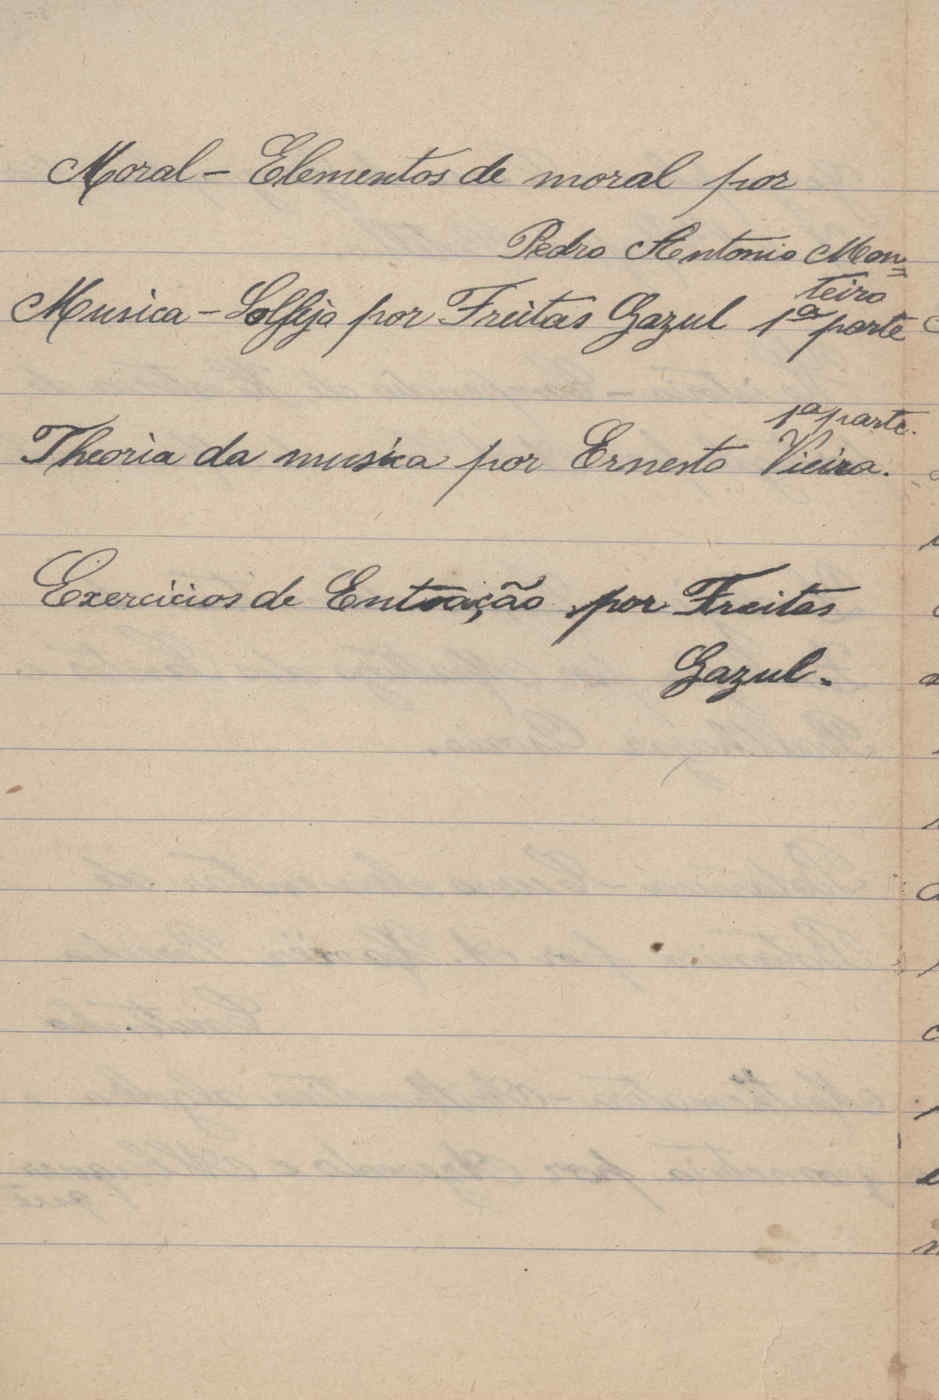 Moral – Elementos de moral por
Pedro Antonio Mon=
teiro
Musica – Solfejo por Freitas Gazul 1ª parte
1ª parte.
Theoria da musica por Ernesto Vieira.
Exercicios de Entoação por Freitas
Gazul.